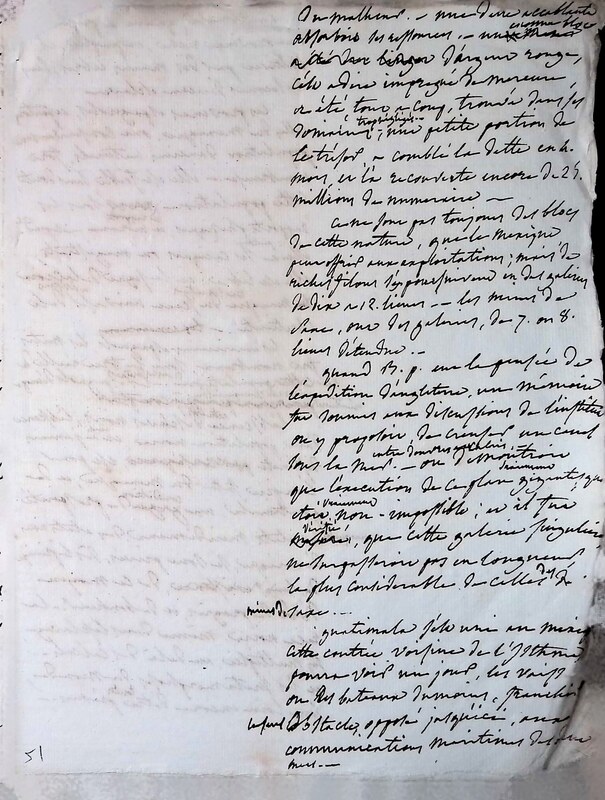 du malheur. — une dette accablante
absorboit ses ressources. — un
énorme bloc
a été d'argent rouge,
c'est à dire imprégné de mercure,
a été tout a coup, trouvé dans ses
domaines; une petite portion de
le trésor, a comblé la dette en 4.
mois, et l'a recouverte encore de 25.
millions de numeraire —
ce ne sont pas toujours des blocs
de cette nature, que le Mexique
peut offrir aux exploitations; mais de
riches filons s'y poursuivent en des galeries
de dix a 12. lieues — les mines de
Saxe, ont des galeries, de 7. ou 8.
lieues d'étendue. —
quand B. p. eut la pensée de
l'expédition d'angleterre, un mémoire
fut soumis aux discussions de l'institut
on y proposoit, de creuser un canal
entre Douvres et Calais.
sous la mer. — on démontroit
que l'execution de ce plan gigantesque
étoit non-impossible; et il fut
vérifié, que cette galerie singuliere
ne surpasseroit pas en longueur
la plus considerable de celles des
mines de Saxe. ..
guatimala s'est uni au mexique
cette contrée voisine de l'Isthme
pourra voir un jour, les vaiss.
ou les bateaux du moins, franchir
le seul obstacle, opposé jusqu'ici, aux
communications maritimes des deux
mers. —
51